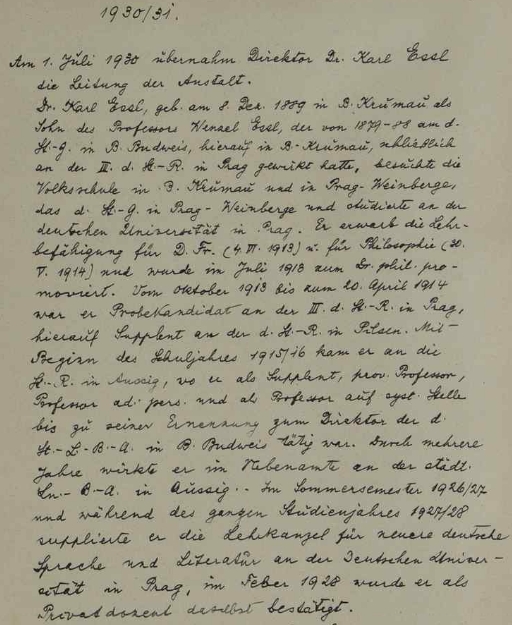 1930/31.
Am 1. Juli 1930 übernahm Direktor Dr. Karl Essl
die Leitung der Anstalt.
Dr. Karl Essl, geb. am 8. Dez. 1889 in B. Krumau als
Sohn des Professors Wenzel Essl, der von 1879-88 am d.
St.-G. in B. Budweis, hierauf in B. Krumau, schließlich
an der III. d. St.-R. in Prag gewirkt hatte, besuchte die
Volksschule in B. Krumau und in Prag-Weinberge,
das d. St.-G. in Prag-Weinberge und studierte an der
deutschen Universität in Prag. Er erwarb die Lehr-
befähigung für D. Fr. (4. VI. 1913) u. für Philosophie (30.
V. 1914) und wurde im Juli 1913 zum Dr. phil. pro-
moviert. Vom Oktober 1913 bis zum 20. April 1914
war er Probekandidat an der III. d. St.-R. in Prag,
hierauf Supplent an der d. St.-R. in Pilsen. Mit
Beginn des Schuljahres 1915/16 kam er an die
St.-R. in Aussig, wo er als Supplent, prov. Professor,
Professor ad. pers. und als Professor auf syst. Stelle
bis zu seiner Ernennung zum Direktor der d.
St.-L.-B.-A. in B. Budweis tätig war. Durch mehrere
Jahre wirkte er im Nebenamte an der städt.
Ln.-B.-A. in Aussig. - Im Sommersemester 1926/27
und während des ganzen Studienjahres 1927/28
supplierte er die Lehrkanzel für neuere deutsche
Sprache und Literatur an der Deutschen Univer-
sität in Prag, im Feber 1928 wurde er als
Privatdozent daselbst bestätigt.